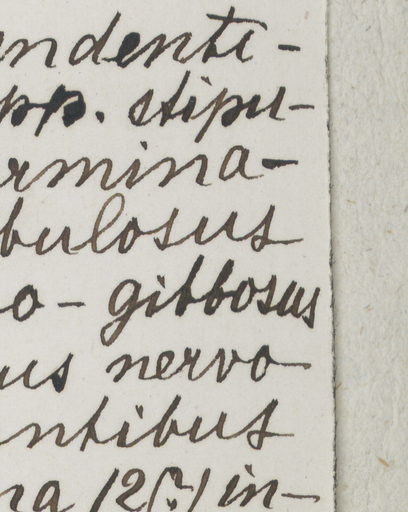 ndente-
pp. stipu-
rmina-
bulosus
o - gibbosus
us nervo
ntibus
na (2(?) in-